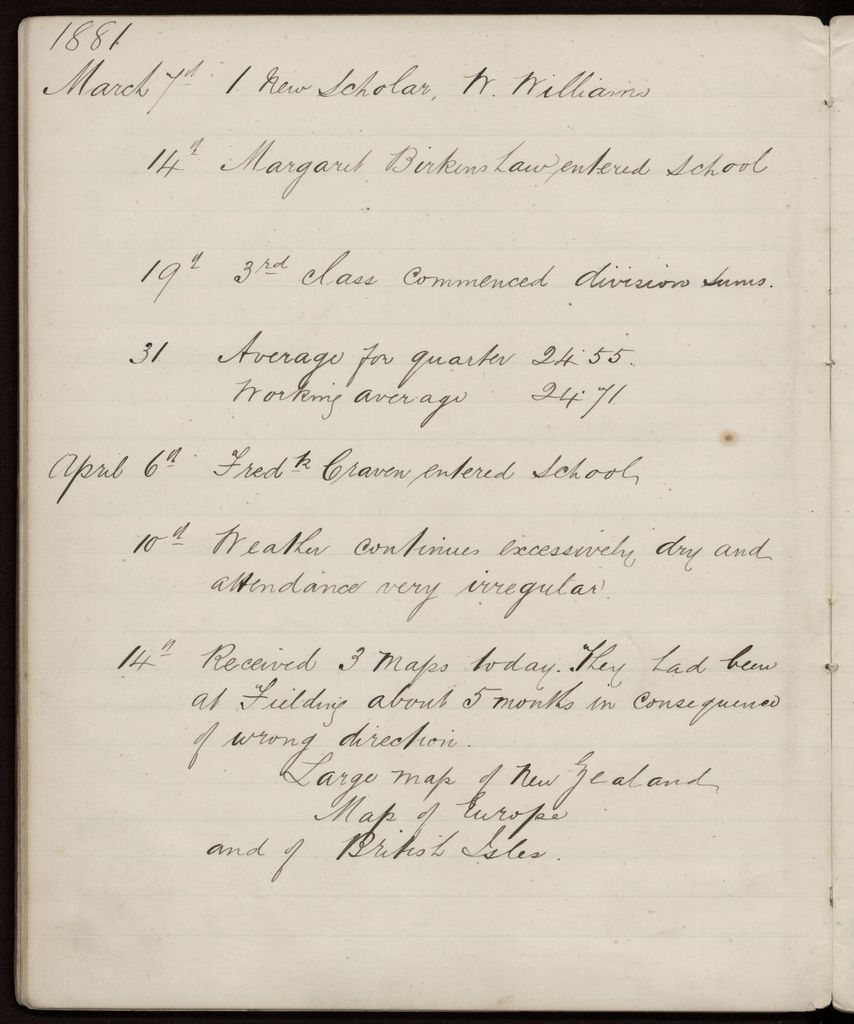 1881
March 7th 1 New Scholar, W. Williams
14th Margaret Birkinshaw entered school
19th 3rd class commenced division sums.
31 Average for quarter 24.55.
Working average 24.71
April 6th Fredk Craven entered school
10th Weather continues excessively dry and
attendance very irregular.
14th Received 3 maps today. They had been
at Fielding about 5 months in consequence
of wrong direction.
Large map of New Zealand
Map of Europe
and of British Isles.